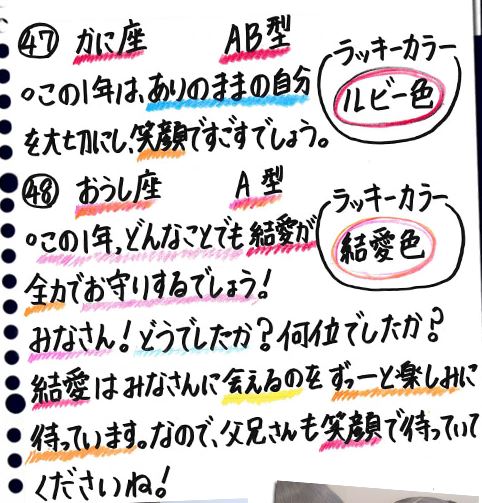 ㊼ かに座 AB型
ラッキーカラー
ルビー色
○この1年は、ありのままの自分
を大切にし、笑顔ですごすでしょう。
㊽ おうし座 A型
ラッキーカラー
結愛色
○この1年、どんなことでも結愛が
全力でお守りするでしょう!
みなさん!どうでしたか?何位でしたか?
結愛はみなさんに会えるのをずっーと楽しみに
待っています。なので、父兄さんも笑顔で待っていて
くださいね!